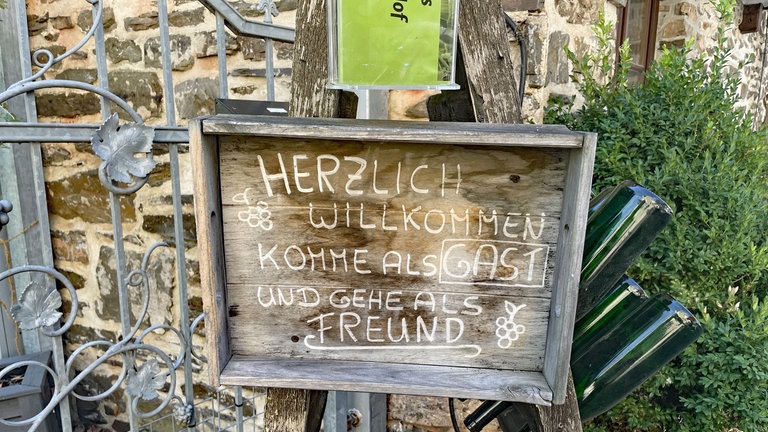 HERZLICH
WILLKOMMEN
KOMME ALS GAST
UND GEHE ALS
FREUND